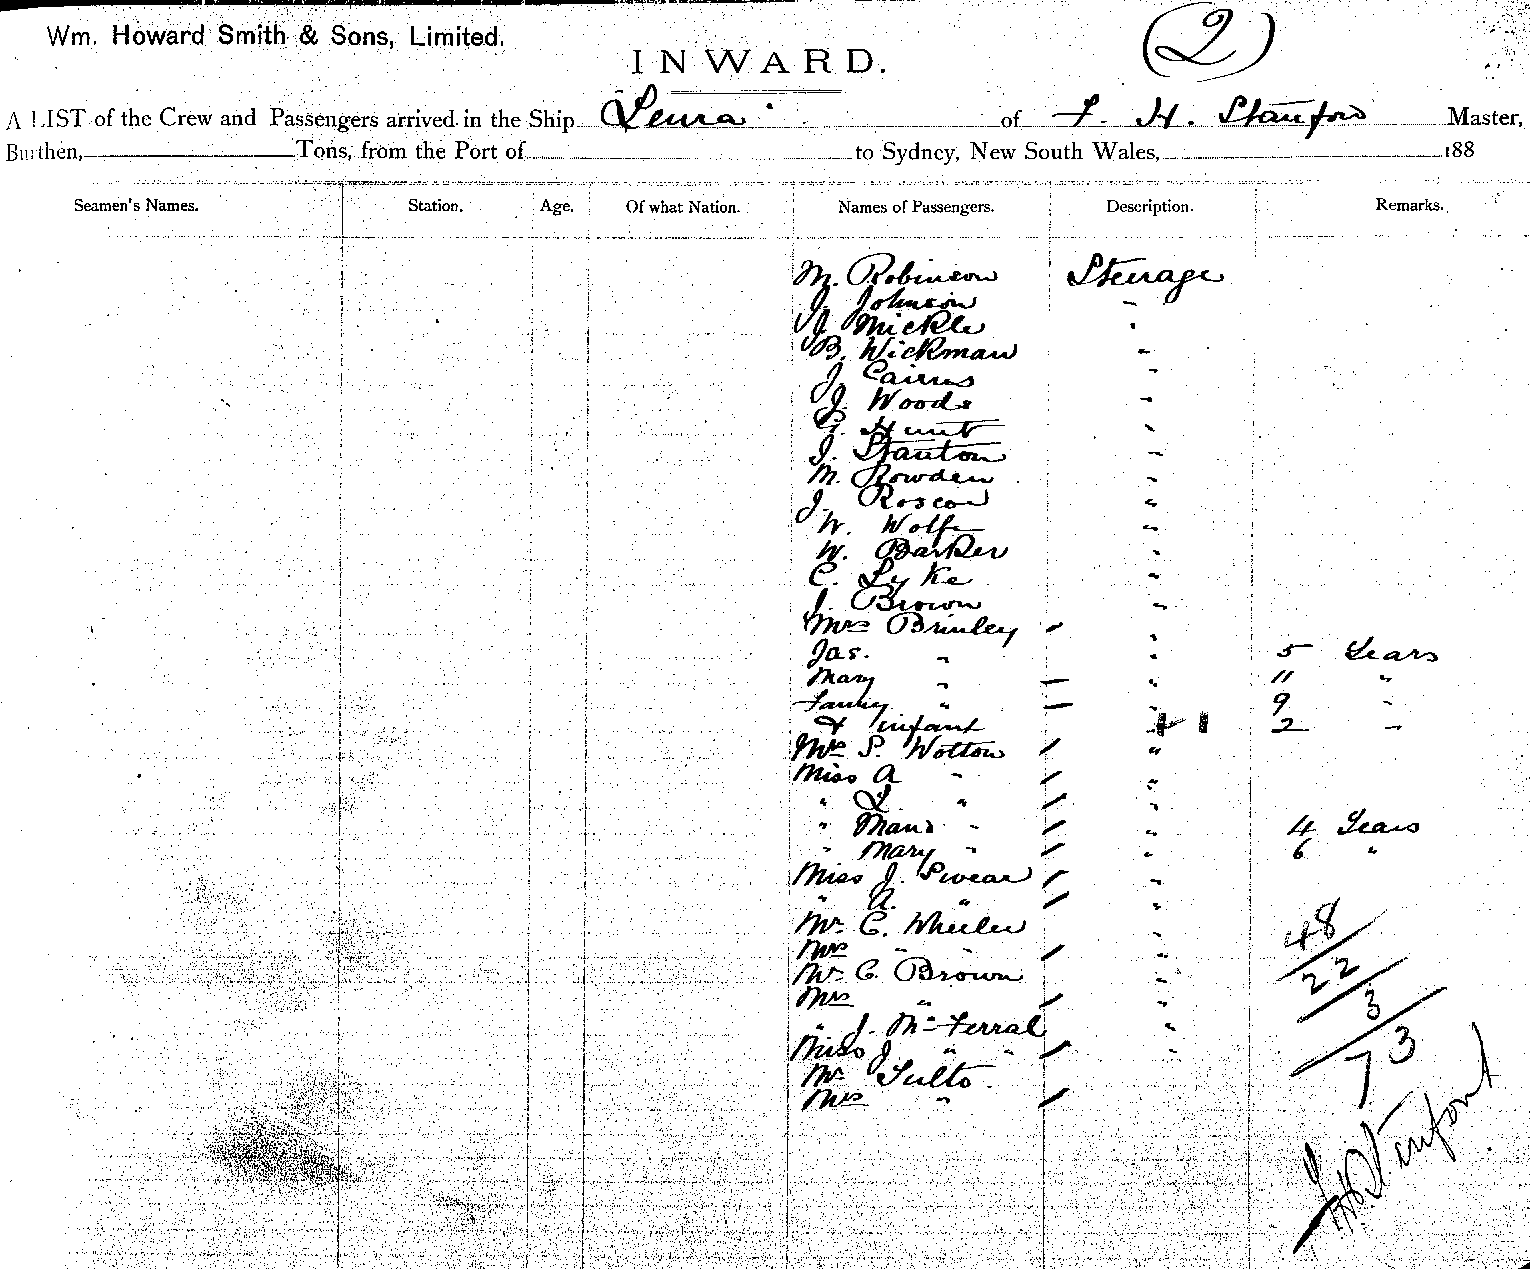 Wm. Howard Smith & Sons, Limited.
(2)
INWARD.
A LIST of the Crew and Passengers arrived in the Ship Leura of F. H. Stanford Master,
Burthen, Tons, from the Port of to Sydney, New South Wales, 188
Seamen's Names. Station. Age. Of what Nation. Names of Passengers. Description. Remarks.
M. Robinson Steerage
J. Johnson "
J. Mickle "
B. Wickman "
J. Cairns "
J. Woods "
G. Hunt "
J. Stanton "
M. Rowden "
J. Roscoe "
W. Wolfe "
W. Barker "
C. Lyke "
J. Brown "
Mrs Brinley "
Jas. " " 5 Years
Mary " " 11 "
Fanny " " 9 "
& infant " 2 "
Mrs S. Wotton "
Miss A " "
" L " "
" Maud " " 4 Years
" Mary " " 6 "
Miss J. Swear "
" A. " "
Mr C. Wheeler "
Mrs " " "
Mr C. Brown "
Mrs " "
" J. McFerral "
Miss J " " "
Mr Tulto
Mrs "
48
22
3
73
F H Stanford